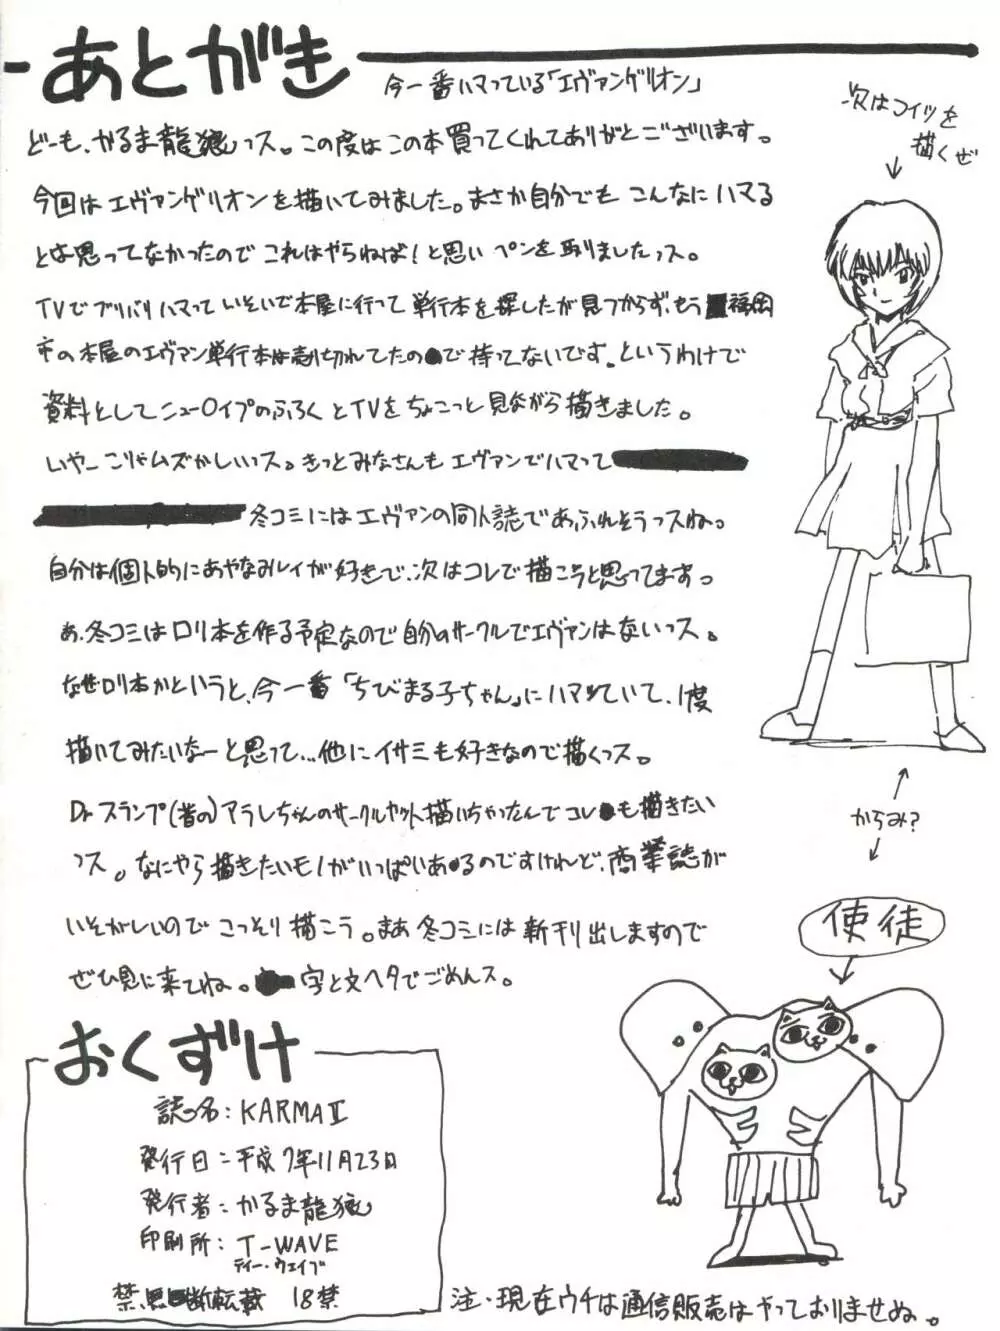 あとがき
今一番ハマっている「エヴァンゲリオン」
どーも、かるま龍狼っス。この度はこの本買ってくれてありがとうございます。
今回はエヴァンゲリオンを描いてみました。まさか自分でもこんなにハマる
とは思ってなかったのでこれはやらねば！と思いペンを取りましたっス。
TVでブリバリハマっていそいで本屋に行って単行本を探したが見つからず、もう福岡
市の本屋のエヴァン単行本は売り切れてたので持ってないです。というわけで
資料としてニュー〇イプのふろくとTVをちょこっと見ながら描きました。
いやーこりゃムズかしいっス。きっとみなさんもエヴァンでハマって
冬コミにはエヴァンの同人誌であふれそうっスね。
自分は個人的にあやなみレイが好きで、次はコレで描こうと思ってますっ
あ、冬コミはロリ本を作る予定なので自分のサークルでエヴァンはないっス。
なぜロリ本かというと、今一番「ちびまる子ちゃん」にハマっていて、1度
描いてみたいなーと思って…他にイサミも好きなので描くっス。
Dr.スランプ(昔の)アラレちゃんのサークルカット描いちゃったんでコレも描きたい
っス。なにやら描きたいモノがいっぱいあるのですけれど、商業誌が
いそがしいのでこっそり描こう。まあ冬コミには新刊出しますので
ぜひ見に来てね。字と文ヘタでごめんス。
次はコイツを
描くぜ
からみ？
使徒
おくずけ
誌名：KARMAⅡ
発行日：平成7年11月23日
発行者：かるま龍狼
印刷所：T-WAVE
ティー・ウェイブ
禁、無断転載 18禁
注・現在ウチは通信販売はやっておりませぬ。